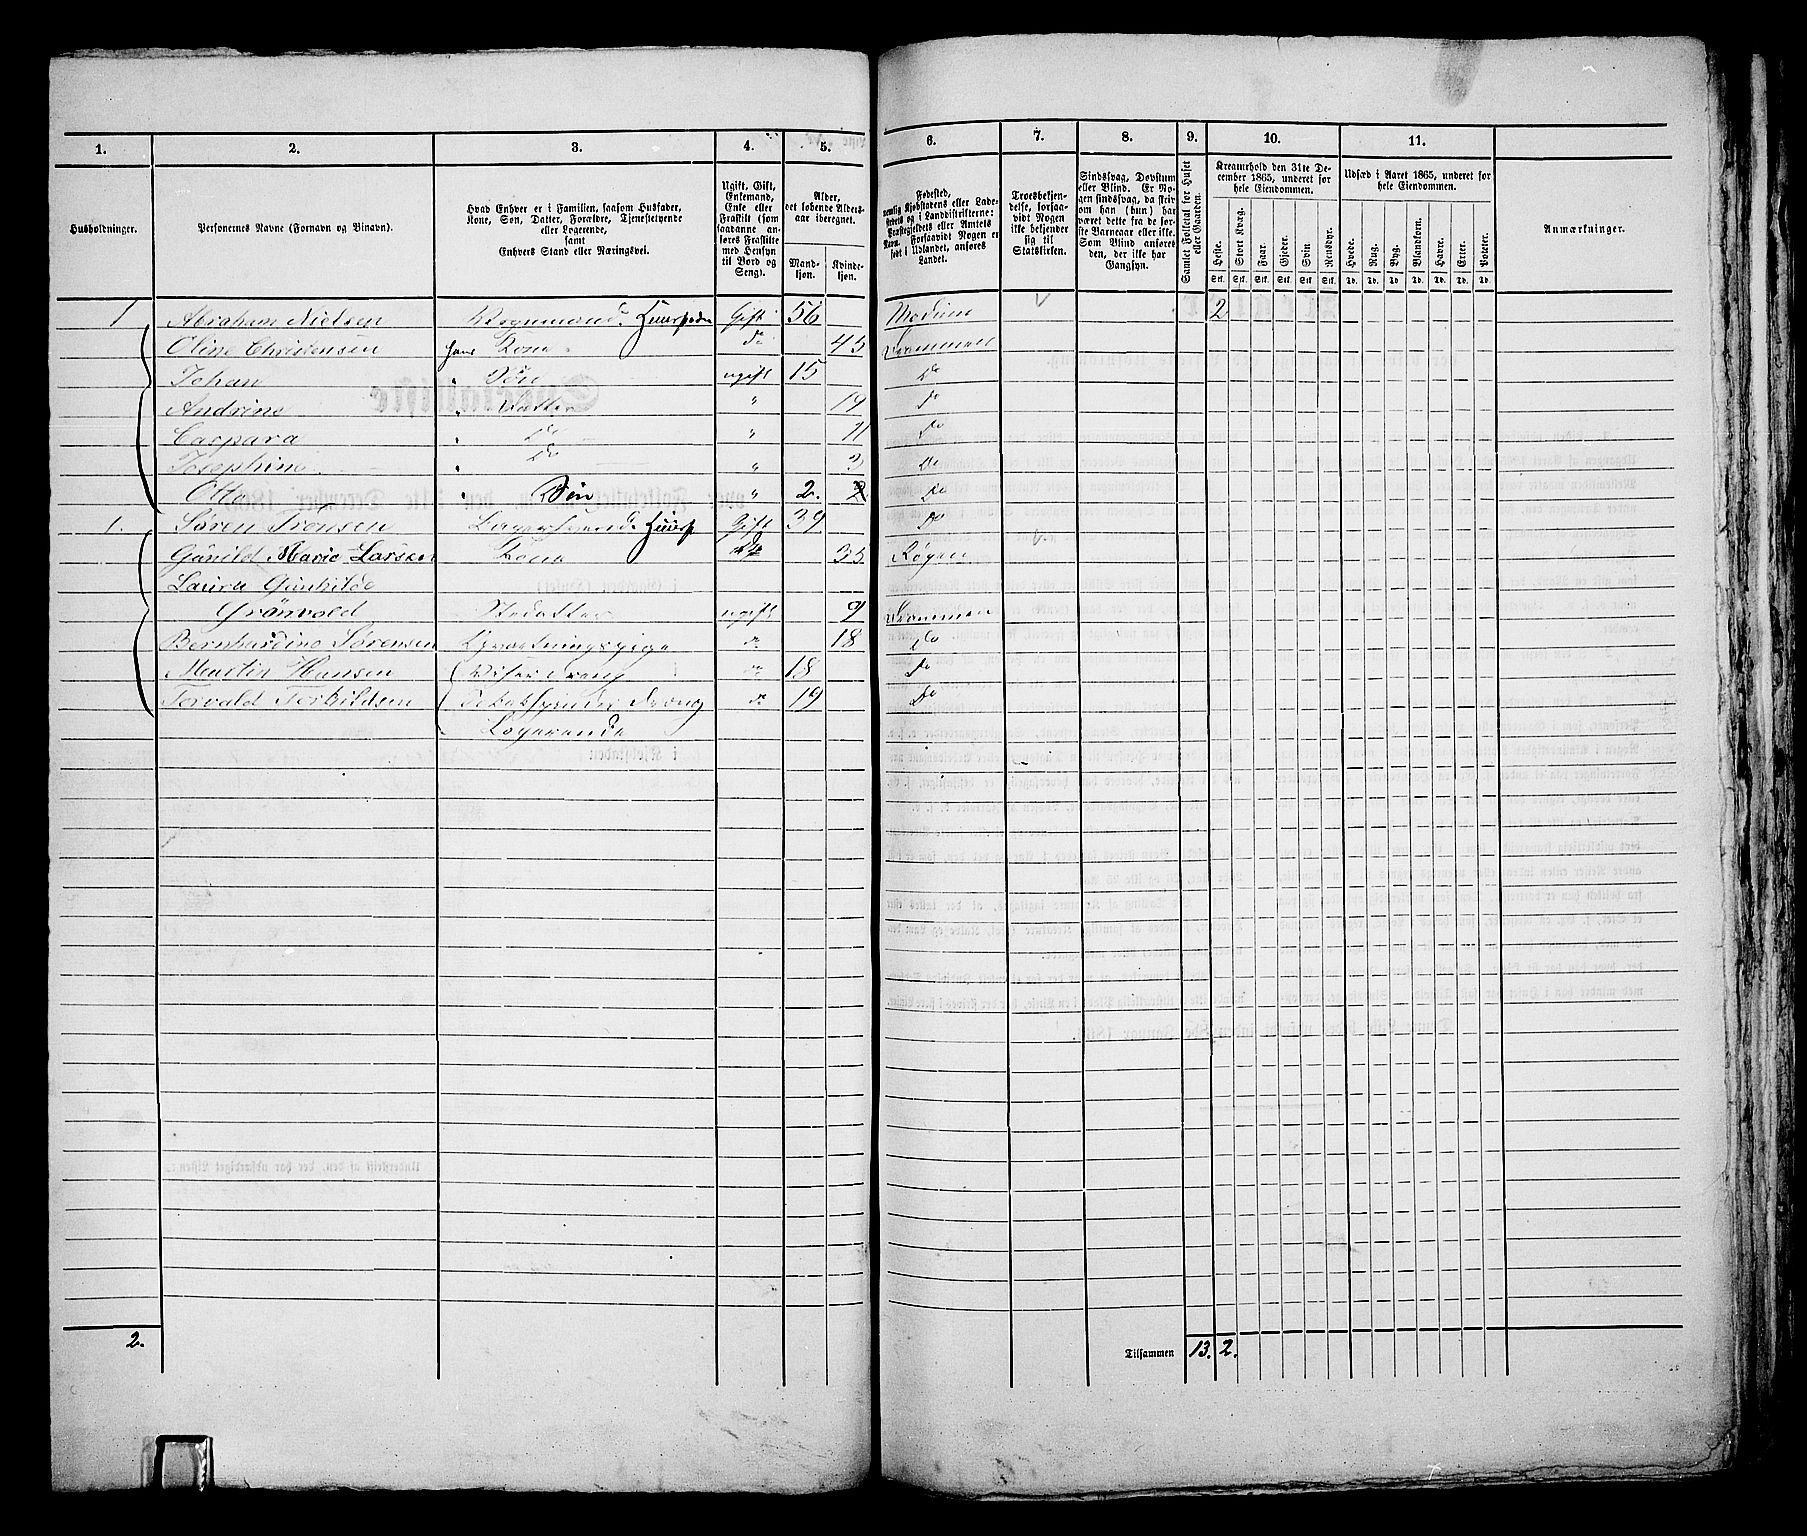 1. 2. 3. 4. 5. 6. 7. 8. 9. 10. 11.
Husholdninger.
Personernes Navne (Fornavn og Binavn).
Hvad Enhver er i Familien, saasom Husfader,
Kone, Søn, Datter, Forældre, Tjenestetyende
eller Logerende,
samt
Enhvers Stand eller Næringsvei.
Ugift, Gift,
Enkemand,
Enke eller
Fraskilt (som
saadanne an-
føres Fraskilte
med Hensyn
til Bord og
Seng).
Alder,
det løbende Alders-
aar iberegnet.
Mand-
kjøn.
Kvinde-
kjøn.
Fødested,
nemlig Kjøbstadens eller Lade-
stedets og i Landdistrikterne:
Præstegjeldets eller Amtets
Navn. Forsaavidt Nogen er
født i Udlandet, anføres
Landet.
Troesbekjen-
delse, forsaa-
vidt Nogen
ikke bekjender
sig til
Statskirken.
Sindssvag, Døvstum
eller Blind. Er No-
gen sindssvag, da skriv
om han (hun) har
været dette fra de før-
ste Barneaar eller ikke.
Som Blind anføres
den, der ikke har
Gangsyn.
Samlet Folketal for Huset
eller Gaarden.
Kreaturhold den 31te De-
cember 1865, underet for
hele Eiendommen.
Heste. Stort Kvæg. Faar. Gjeder. Svin. Rensdyr.
Stk. Stk. Stk. Stk. Stk. Stk.
Udsæd i Aaret 1865, underet for
hele Eiendommen.
Hvede. Rug. Byg. Blandkorn. Havre. Erter. Poteter.
Td. Td. Td. Td. Td. Td. Td.
Anmærkninger.
1 Abraham Nielsen Vognmand. Gift 56 Modum 2
Oline Christensen hans Kone do 45 Drammen
Johan " Søn ugift 15 Do
Andrine " Datter " 14 Do
Caspara " Do " 11 Do
Josephine " Do " 3 Do
Otto " Søn " 2. 2 Do
1. Søren Gift 39 Do
Gunild Marie Larsen Kone do 35 Røgen
Laura Gunhilde
Grönvold Stedatter ugift 9 Drammen
Bernhardine Sørensen do 18 Do
Martin Hansen do 18 Do
Torvald Torkildsen do 19 Do
Logerende
2. Tilsammen 13. 2.